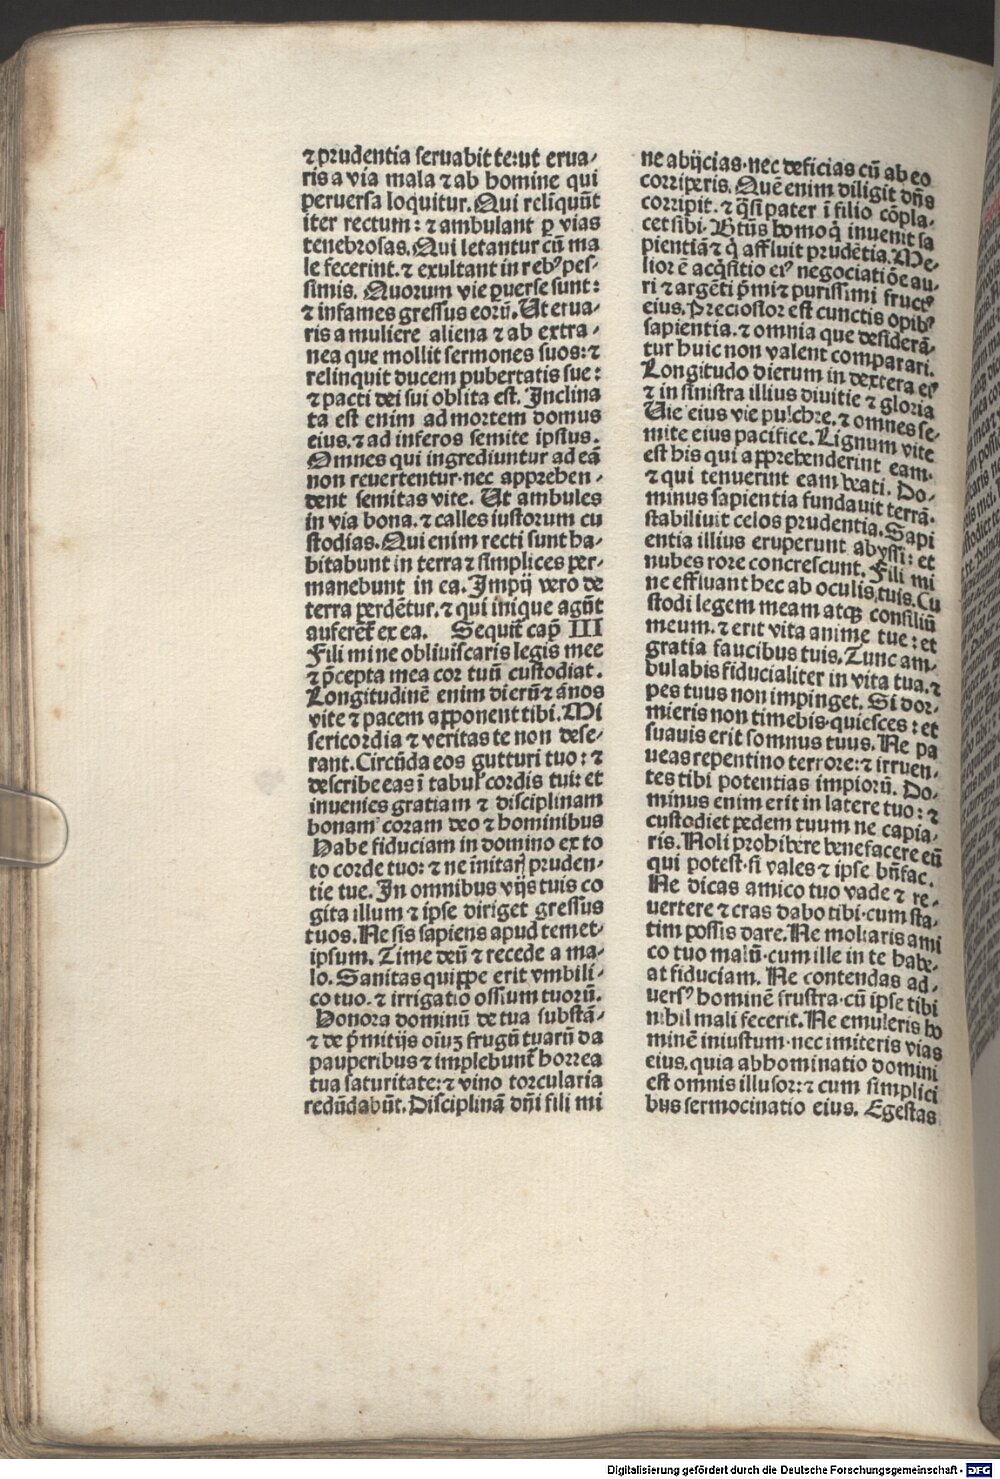 ⁊ prudentia seruabit te: ut erua⸗
ris a via mala ⁊ ab homine qui
peruersa loquitur. Qui relinquūt
iter rectum: ⁊ ambulant ꝑ vias
tenebrosas. Qui letantur cū ma
le fecerint. ⁊ exultant in rebꝰ pes⸗
simis. Quorum vie ꝑuerse sunt:
⁊ infames gressus eorū. Ut erua⸗
ris a muliere aliena ⁊ ab extra⸗
nea que mollit sermones suos: ⁊
relinquit ducem pubertatis sue:
⁊ pacti dei sui oblita est. Inclina
ta est enim ad mortem domus
eius. ⁊ ad inferos semite ipsius.
Omnes qui ingrediuntur ad eā
non reuertentur. nec apprehen⸗
dent semitas vite. Ut ambules
in via bona. ⁊ calles iustorum cu
stodias. Qui enim recti sunt ha⸗
bitabunt in terra ⁊ simplices per⸗
manebunt in ea. Impij vero de
terra perdētur. ⁊ qui inique agūt
auferēt ex ea. Sequit cap̄ III
Fili mi ne obliuiscaris legis mee
⁊ p̄cepta mea cor tuū custodiat.
Longitudinē enim dierū ⁊ ānos
vite ⁊ pacem apponent tibi. Mi
sericordia ⁊ veritas te non dese⸗
rant. Circūda eos gutturi tuo: ⁊
describe eas ī tabul' cordis tui: et
inuenies gratiam ⁊ disciplinam
bonam coram deo ⁊ hominibus
Habe fiduciam in domino ex to
to corde tuo: ⁊ ne īnitaꝝ pruden⸗
tie tue. In omnibus vijs tuis co
gita illum ⁊ ipse diriget gressus
tuos. Ne sis sapiens apud temet⸗
ipsum. Time deū ⁊ recede a ma⸗
lo. Sanitas quippe erit vmbili⸗
co tuo. ⁊ irrigatio ossium tuorū.
Honora dominū de tua substā⸗
⁊ de p̄mitijs oīuꝫ frugū tuarū da
pauperibus ⁊ implebunt horrea
tua saturitate: ⁊ vino torcularia
redūdabūt. Disciplinā dn̄i fili mi
ne abijcias. nec deficias cū ab eo
corriperis. Quē enim diligit dn̄s
corripit. ⁊ q̄si pater ī filio cōpla⸗
cet sibi. Btūs homo q̄ inuenit sa
pientiā ⁊ q̄ affluit prudētia. Me⸗
lior ē acq̄sitio eiꝰ negociatiōe au⸗
ri ⁊ argēti p̄mi ⁊ purissimi fructꝰ
eius. Preciosior est cunctis opibꝰ
sapientia. ⁊ omnia que desiderā⸗
tur huic non valent comparari.
Longitudo dierum in dextera eiꝰ
⁊ in sinistra illius diuitie ⁊ gloria
Uie eius vie pulchre. ⁊ omnes se⸗
mite eius pacifice. Lignum vite
est his qui apprehenderint eam.
⁊ qui tenuerint eam beati. Do⸗
minus sapientia fundauit terrā.
stabiliuit celos prudentia. Sapi
entia illius eruperunt abyssi: et
nubes rore concrescunt. Fili mi
ne effluant hec ab oculis tuis. Cu
stodi legem meam atqꝫ consiliū
meum. ⁊ erit vita anime tue: et
gratia faucibus tuis. Tunc am⸗
bulabis fiducialiter in vita tua. ⁊
pes tuus non impinget. Si dor⸗
mieris non timebis. quiesces: et
suauis erit somnus tuus. Ne pa
ueas repentino terrore: ⁊ irruen⸗
tes tibi potentias impiorū. Do⸗
minus enim erit in latere tuo: ⁊
custodiet pedem tuum ne capia⸗
ris. Noli prohibere benefacere eū
qui potest. si vales ⁊ ipse bn̄fac.
Ne dicas amico tuo vade ⁊ re⸗
uertere ⁊ cras dabo tibi. cum sta⸗
tim possis dare. Ne moliaris ami
co tuo malū. cum ille in te habe⸗
at fiduciam. Ne contendas ad⸗
uersꝰ hominē frustra. cū ipse tibi
nihil mali fecerit. Ne emuleris ho
minē iniustum. nec imiteris vias
eius. quia abhominatio domini
est omnis illusor: ⁊ cum simplici
bus sermocinatio eius. Egestas
Digitalisierung gefördert durch die Deutsche Forschungsgemeinschaft - DFG